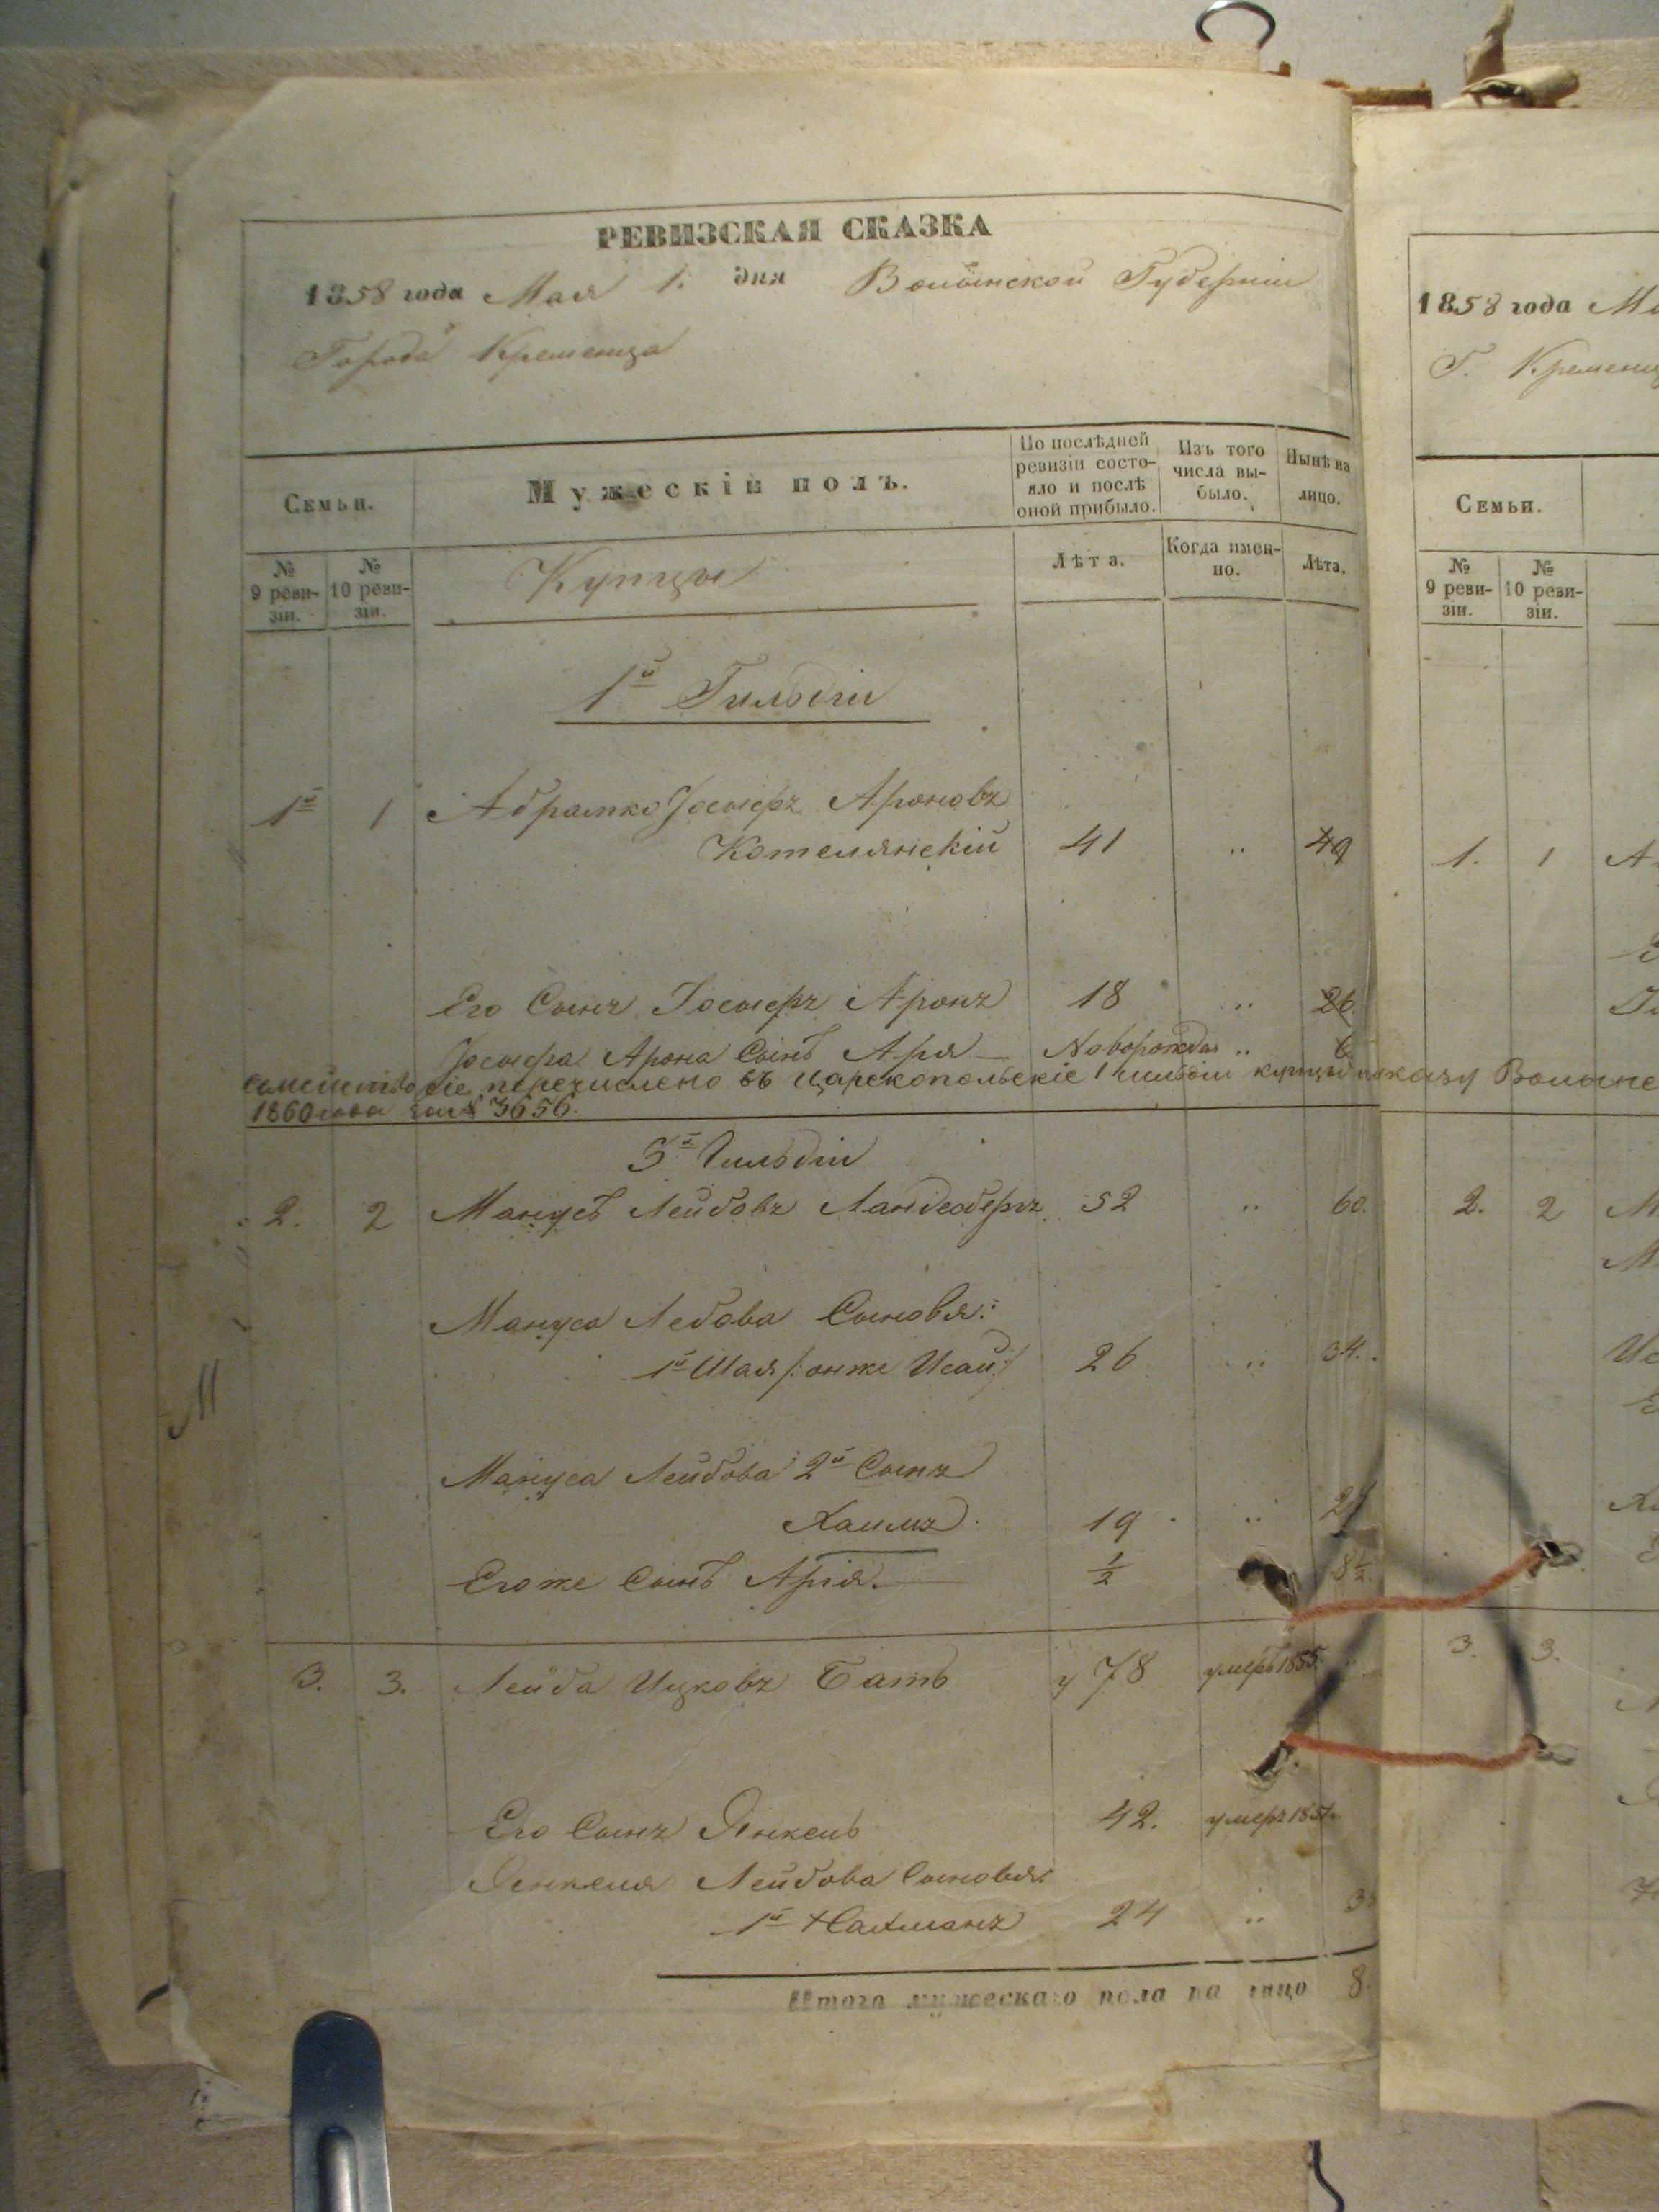 РЕВИЗСКАЯ СКАЗКА
1858 года Мая 1. дня Волынской Губерніи
Города Кременца
Семьи.
Мужескій полъ.
По послѣдней ревизіи состо-
яло и послѣ
оной прибыло.
Изъ того
числа вы-
было.
Нынѣ на
лицо.
№
9 реви-
зіи.
№
10 реви-
зіи.
Купцы
Лѣта.
Когда имен-
но.
Лѣта.
1й Гильдіи
1й 1 Абрамко Іосифъ Ароновъ
Котелянскій 41 " 49
Его Сынъ Іосифъ Аронъ 18 " 26
Іосифа Арона Сынъ Аря Новорожден "
семейство сіе перечислено въ Царекопольскіе 1 гильдіи купцы по указу Волынс
1860 года за № 3656.
3й Гильдіи
2. 2 Манусъ Лейбовъ Ландсбергъ 52 " 60.
Мануса Лебова Сыновья:
1й Шая /: онже Исай :/ 26 " 34.
Мануса Лейбова 2й Сынъ
Хаимъ 19 "
Егоже Сынъ Арія 1/2 8 1/2
3. 3. Лейба Ицковъ Батъ у 78 умеръ 1855
Его Сынъ Янкель 42. умеръ
Янкеля Лейбова Сыновья:
1й Нахманъ 24 "
Итого мужескаго пола на лицо 8.
1858 года
Г. Кремен
Семьи.
№
9 реви-
зіи.
№
10 реви-
зіи.
1. 1
2. 2
3. 3.